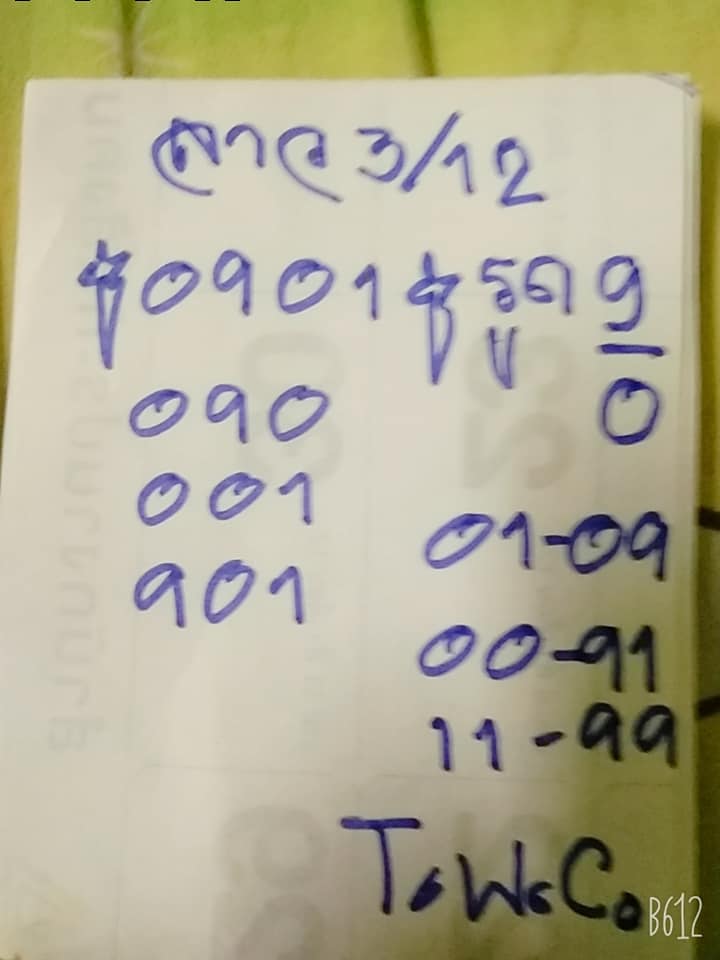 ลาว 3/12
0901 รูด 9
0
090
001
901
01-09
00-91
11-99
T.W.C.
B612